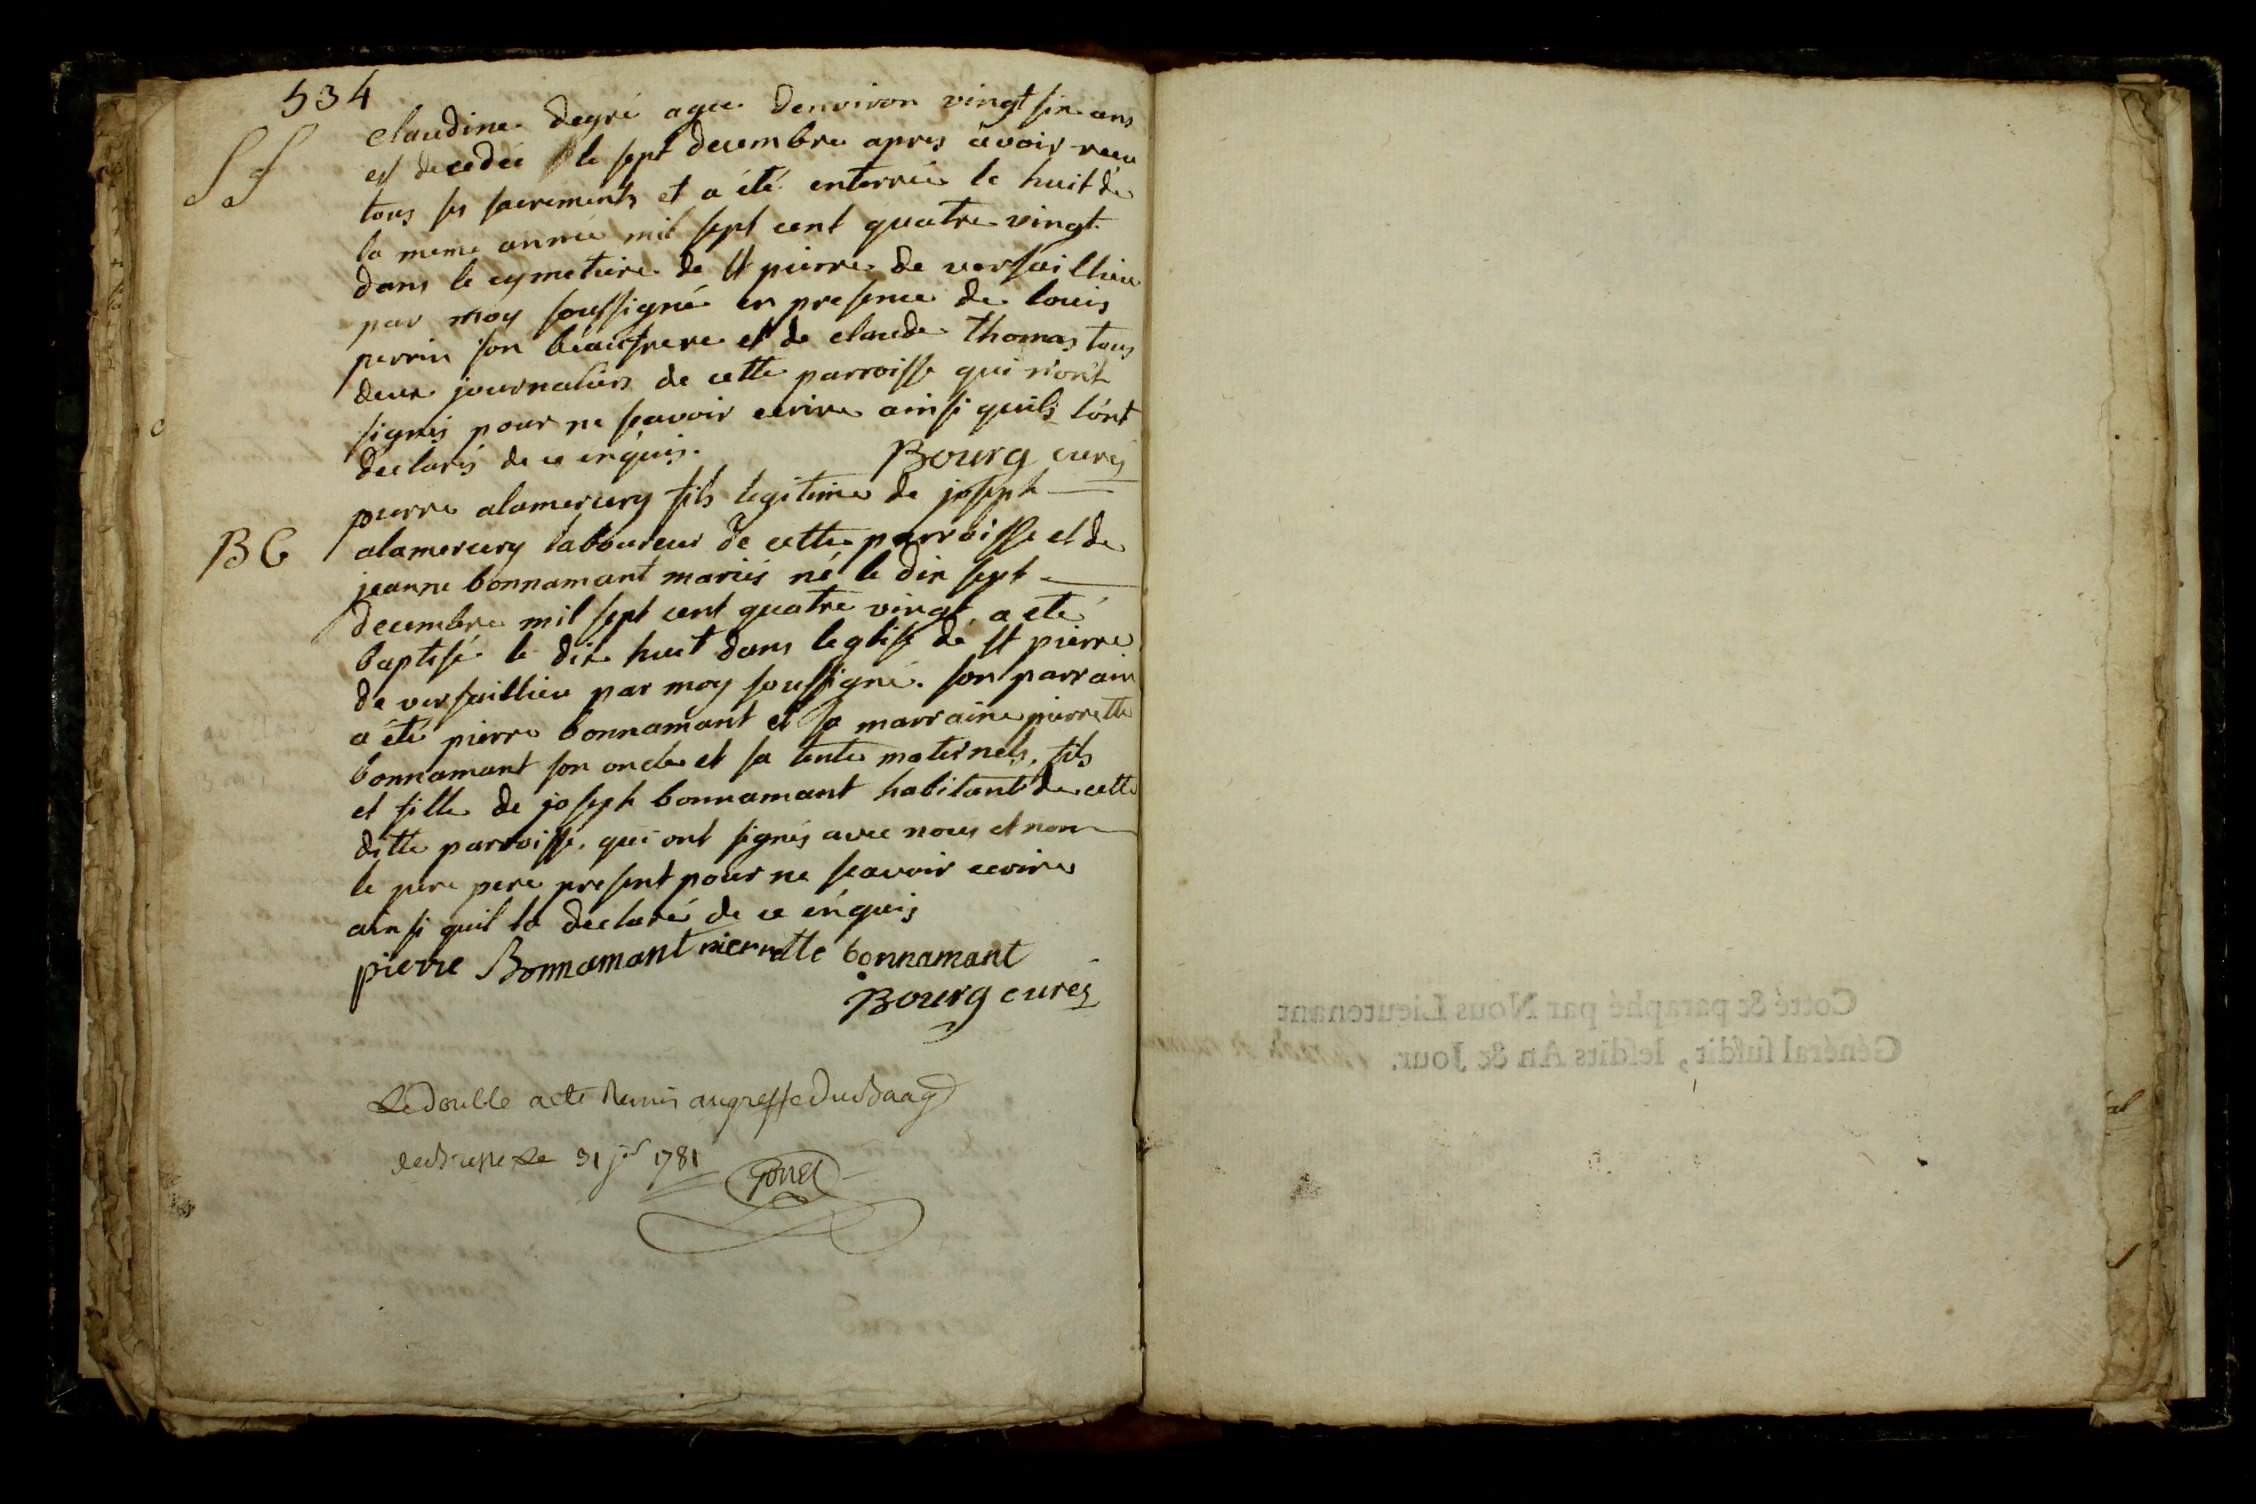 534
SS
claudine degré agée denviron vingt six ans
est decedée le sept decembre apres avoir recu
tous ses sacrements et a été enterrée le huit de
la meme année mil sept cent quatre vingt
dans le cymetiere de st pierre de versaillieu
par moy soussigné en presence de louis
perrin son beaufrere et de claude thomas tous
deux journaliers de cette parroisse qui n'ont
signés pour ne scavoir ecrire ainsi quils l'ont
declarés de ce enquis. Bourg curé
pierre alamercery fils legitime de joseph
BC
alamercery laboureur de cette parroisse et de
jeanne bonnamant mariés né le dix sept
decembre mil sept cent quatre vingt a été
baptisé le dix huit dans leglise de st pierre
de versaillieu par moy soussigné. son parrain
a été pierre bonnamant et sa marraine pierrette
bonnamant son oncle et sa tente maternels, fils
et fille de joseph bonnamant habitant de cette
ditte parroisse, qui ont signés avec nous et non
le pere pere present pour ne scavoir ecrire
ainsi quil la declaré de ce enquis
pierre Bonnamant pierrette bonnamant
Bourg curé
Le double acte Remis au greffe du Baage
de Bresse le 31 jer 1781
Cotté & paraphé par Nous Lieutenant
Général susdit, lesdits An & Jour.